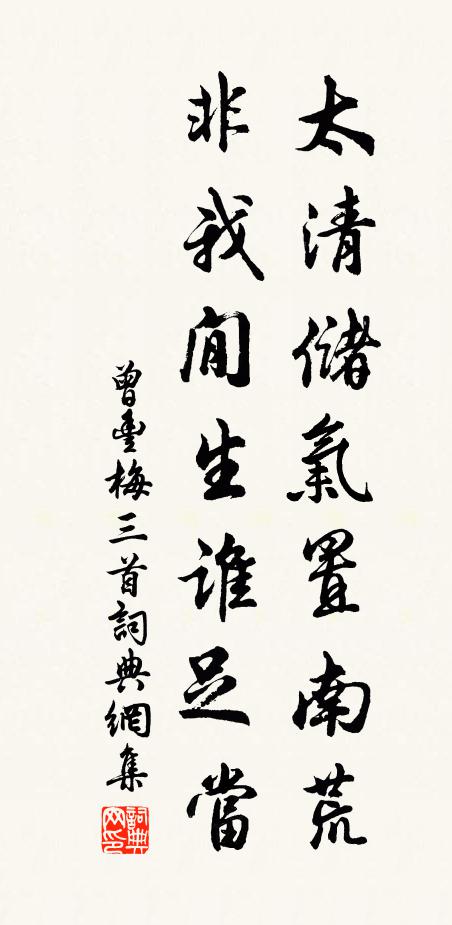 太清儲氣置南荒
非我閒生誰足當
曾豐梅三首詞典網集
詞典网印